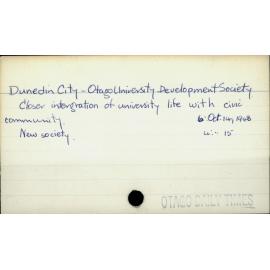 Dunedin City - Otago University Development Society.
Closer intergration of university life with civic
community. 6 Oct 1948
New society. 4:- 15
OTAGO DAILY TIMES